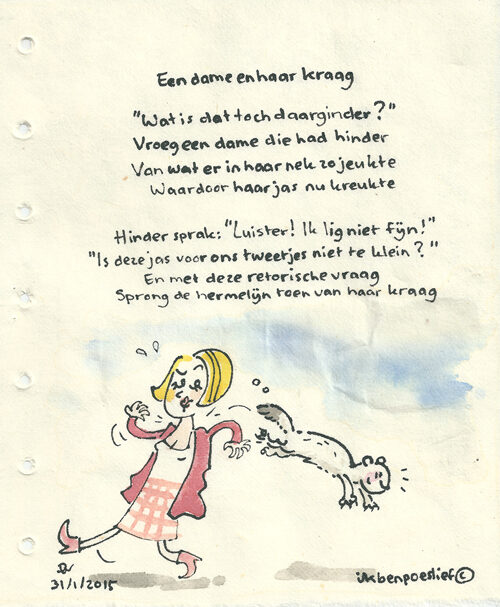 Een dame en haar kraag
"Wat is dat toch daarginder?"
Vroeg een dame die had hinder
Van wat er in haar nek zo jeukte
Waardoor haar jas nu kreukte
Hinder sprak: "Luister! Ik lig niet fijn!"
"Is deze jas voor ons tweetjes niet te klein?"
En met deze retorische vraag
Sprong de hermelijn toen van haar kraag
31/1/2015
ikbenpoeslief©